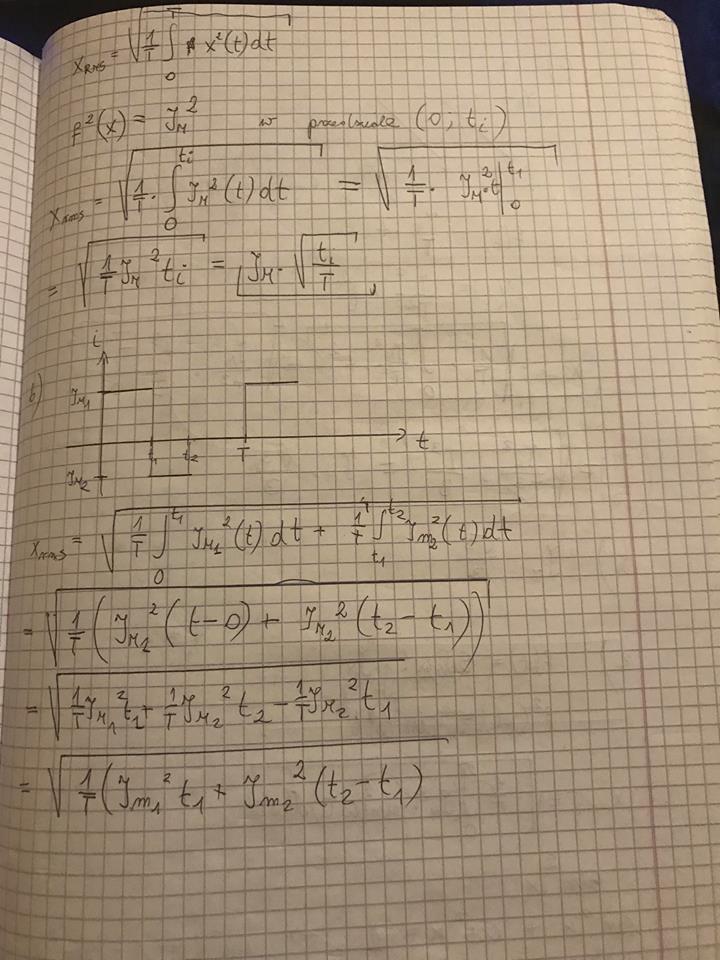 X_RMS = √(1/T ∫_0^T x²(t)dt)
f²(x) = I_M² w przedziale (0; t_i)
X_RMS = √(1/T · ∫_0^{t_i} I_M²(t)dt) = √(1/T · I_M²·t |_0^{t_1})
= √(1/T I_M² t_i) = I_M · √(t_i/T)
b)
i
I_M1
t_1 t_2 T t
I_M2
X_RMS = √(1/T ∫_0^{t_1} I_M1²(t)dt + 1/T ∫_{t_1}^{t_2} I_m2²(t)dt)
= √(1/T (I_M2²(t-0) + I_M2²(t_2-t_1)))
= √(1/T I_M1² t_1 + 1/T I_M2² t_2 - 1/T I_M2² t_1)
= √(1/T (I_m1² t_1 + I_m2² (t_2-t_1)